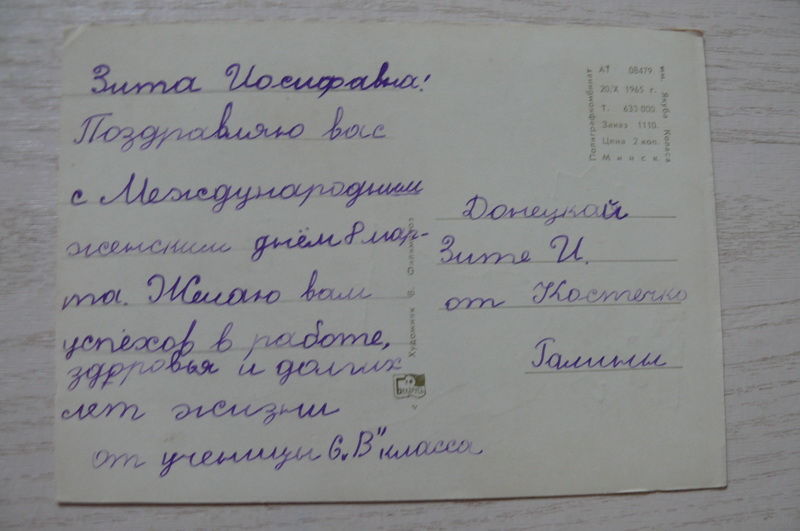 Зита Иосифавна!
Поздравляю вас
с Международним
женским днём 8 мар-
та. Желаю вам
успехов в работе,
здоровья и долгих
лет жизни
от ученицы 6 „В" класса
Донецкай
Зите И.
от Костечко
Галины
Художник В.
БЕЛАРУСЬ
Полиграфкомбинат
АТ 08479
20/X 1965 г.
Т. 633 000
Заказ 1110.
Цена 2 коп.
Минск
им. Якуба Коласа